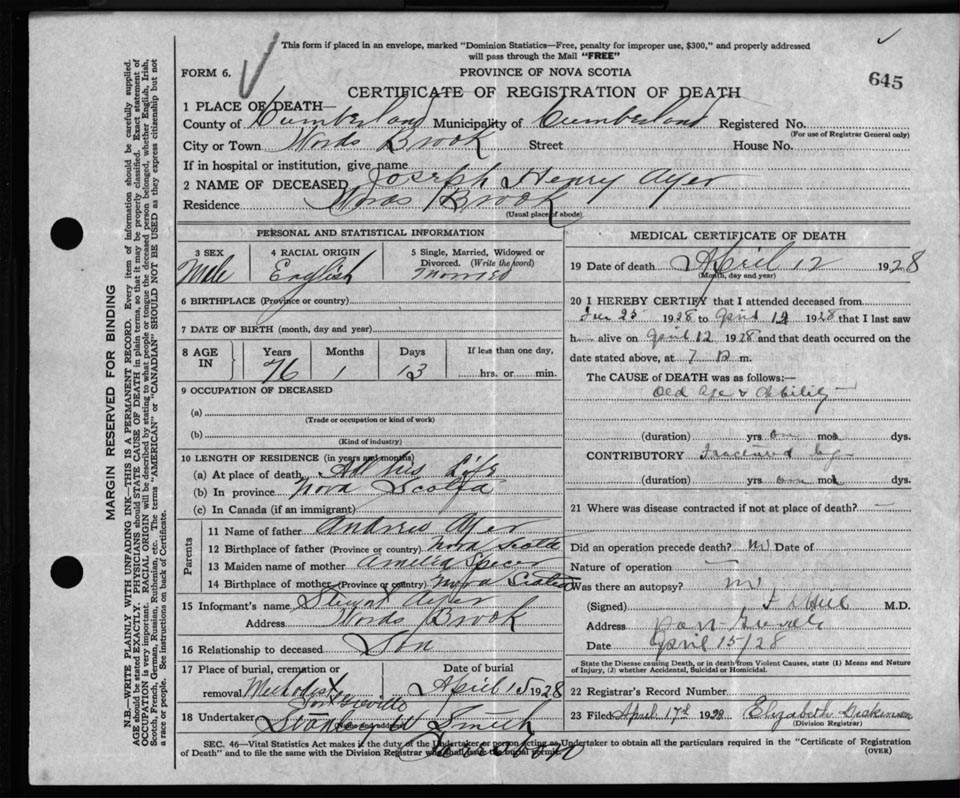 This form if placed in an envelope, marked "Dominion Statistics—Free, penalty for improper use, $300," and properly addressed
will pass through the Mail "FREE"
FORM 6. PROVINCE OF NOVA SCOTIA
645
CERTIFICATE OF REGISTRATION OF DEATH
1 PLACE OF DEATH—
County of Cumberland Municipality of Cumberland Registered No.
(For use of Registrar General only)
City or Town Wards Brook Street House No.
If in hospital or institution, give name
2 NAME OF DECEASED Joseph Henry Ayer
Residence Wards Brook
(Usual place of abode)
PERSONAL AND STATISTICAL INFORMATION
3 SEX 4 RACIAL ORIGIN 5 Single, Married, Widowed or
Divorced. (Write the word)
Male English Married
6 BIRTHPLACE (Province or country)
7 DATE OF BIRTH (month, day and year)
8 AGE IN Years Months Days If less than one day,
76 1 13 hrs. or min.
9 OCCUPATION OF DECEASED
(a)
(Trade or occupation or kind of work)
(b)
(Kind of industry)
10 LENGTH OF RESIDENCE (in years and months)
(a) At place of death All his Life
(b) In province Nova Scotia
(c) In Canada (if an immigrant)
Parents
11 Name of father Andrew Ayer
12 Birthplace of father (Province or country) Nova Scotia
13 Maiden name of mother Amelia
14 Birthplace of mother (Province or country) Nova Scotia
15 Informant's name Stewart Ayer
Address Wards Brook
16 Relationship to deceased Son
17 Place of burial, cremation or Date of burial
removal Methodist April 15 1928
Port Greville
18 Undertaker Smith
MEDICAL CERTIFICATE OF DEATH
19 Date of death April 12 1928
(Month, day and year)
20 I HEREBY CERTIFY that I attended deceased from
25 1928 to April 12 1928 that I last saw
h alive on April 12 1928 and that death occurred on the
date stated above, at 7 m.
The CAUSE of DEATH was as follows:—
Old Age & debility
(duration) yrs. mos. dys.
CONTRIBUTORY Fractured leg
(duration) yrs. mos. dys.
21 Where was disease contracted if not at place of death?
Did an operation precede death? no Date of
Nature of operation
Was there an autopsy? no
(Signed) Hill M.D.
Address Port Greville
Date April 15/28
State the Disease causing Death, or in death from Violent Causes, state (1) Means and Nature
of Injury, (2) whether Accidental, Suicidal or Homicidal.
22 Registrar's Record Number
23 Filed April 17th 1928 Elizabeth Dickinson
(Division Registrar)
SEC. 46—Vital Statistics Act makes it the duty of the Undertaker or person acting as Undertaker to obtain all the particulars required in the "Certificate of Registration
of Death" and to file the same with the Division Registrar who shall issue the burial permit.
(OVER)
MARGIN RESERVED FOR BINDING
N.B.—WRITE PLAINLY WITH UNFADING INK—THIS IS A PERMANENT RECORD. Every item of information should be carefully supplied.
AGE should be stated EXACTLY. PHYSICIANS should STATE CAUSE OF DEATH in plain terms, so that it may be properly classified. Exact statement of
OCCUPATION is very important. RACIAL ORIGIN will be described by stating to what people or tongue the deceased person belonged, whether English, Irish,
Scotch, French, German, Russian, Ruthenian, etc. The terms "AMERICAN" or "CANADIAN" SHOULD NOT BE USED as they express citizenship but not
a race or people. See instructions on back of Certificate.